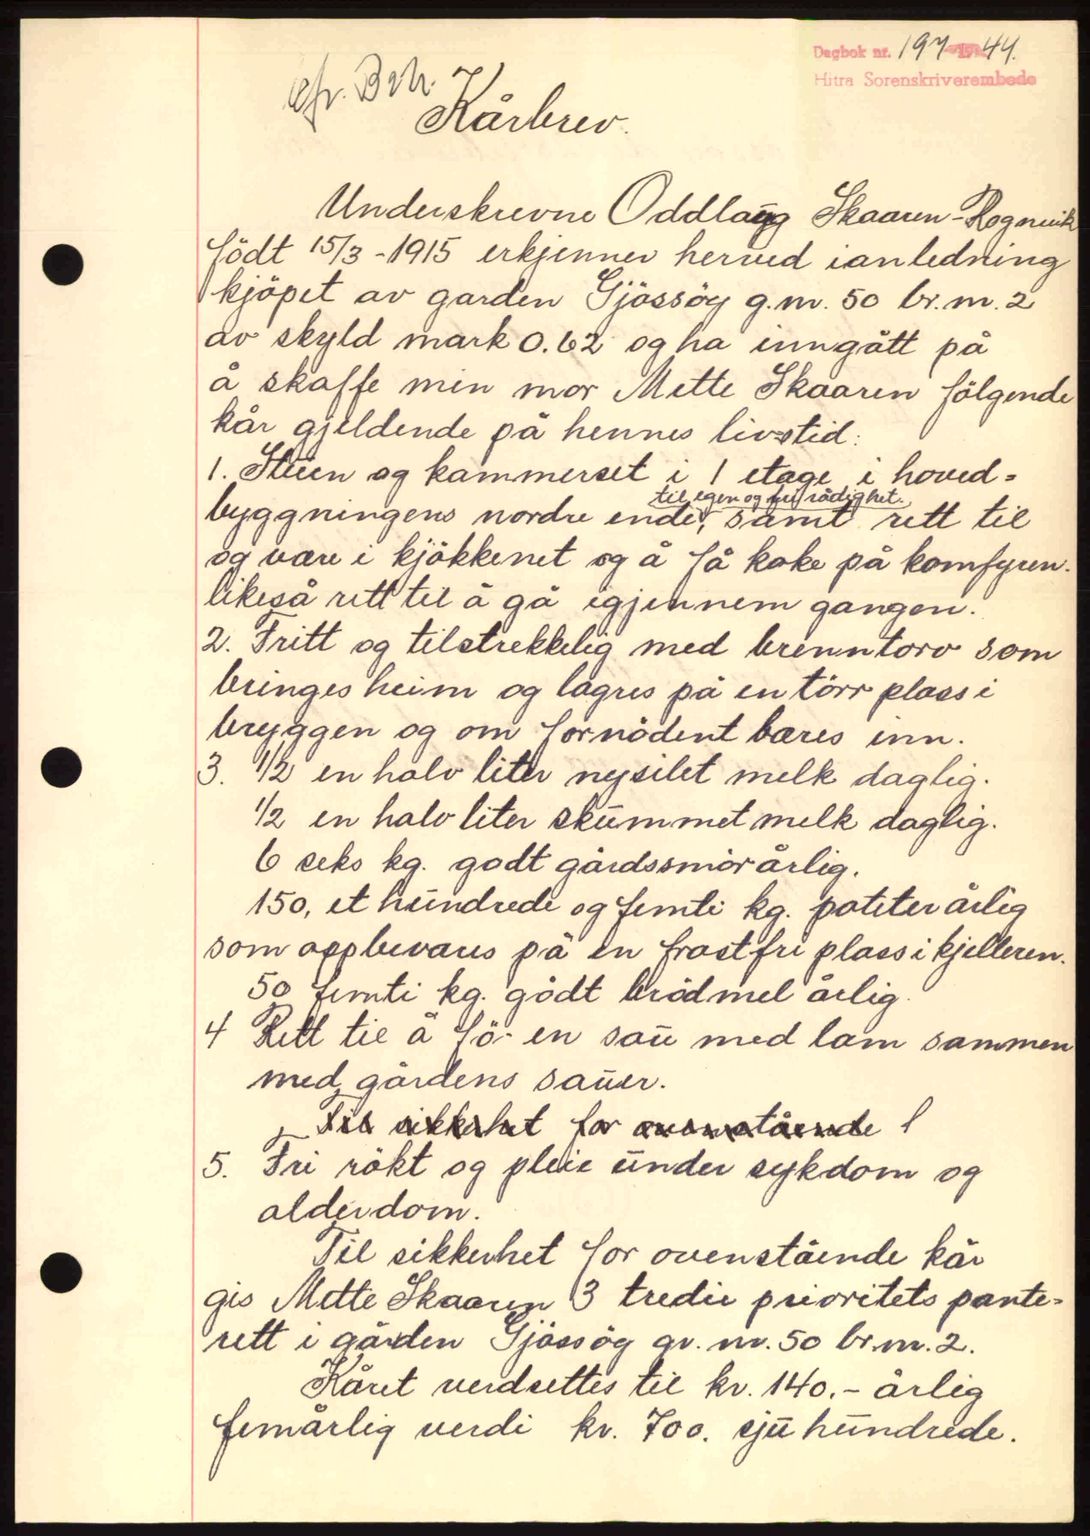 Dagbok nr. 197 1944.
Hitra Sorenskriverembede
Kårbrev.
Underskrevne Oddlaug Skaaren-Rognvik
födt 15/3-1915 erkjenner herved ianledning
kjöpet av garden Gjössöy g.nr. 50 br.nr. 2
av skyld mark 0.62 og ha inngått på
å skaffe min mor Mette Skaaren fölgende
kår gjeldende på hennes livstid:
1. Stuen og kammerset i 1 etage i hoved=
til egen og fri rådighet.
byggningens nordre ende, samt rett til
og være i kjökkenet og å få koke på komfyren.
likeså rett til å gå igjennem gangen.
2. Fritt og tilstrekkelig med brenntorv som
bringes heim og lagres på en törr plass i
bryggen og om fornödent bæres inn.
3. 1/2 en halv liter nysilet melk daglig.
1/2 en halv liter skummet melk daglig.
6 seks kg. godt gårdssmör årlig.
150, et hundrede og femti kg. poteter årlig
som oppbevares på en frostfri plass i kjelleren.
50 femti kg. godt brödmel årlig.
4 Rett til å fö en sau med lam sammen
med gårdens sauer.
Til sikkerhet for ovenstående
5. Fri rökt og pleie under sykdom og
alderdom.
Til sikkerhet for ovenstående kår
gis Mette Skaaren 3 tredie prioritets pante=
rett i gården Gjössöy gr. nr. 50 br.nr. 2.
Kåret verdsettes til kr. 140.- årlig
femårlig verdi kr. 700. sju hundrede.